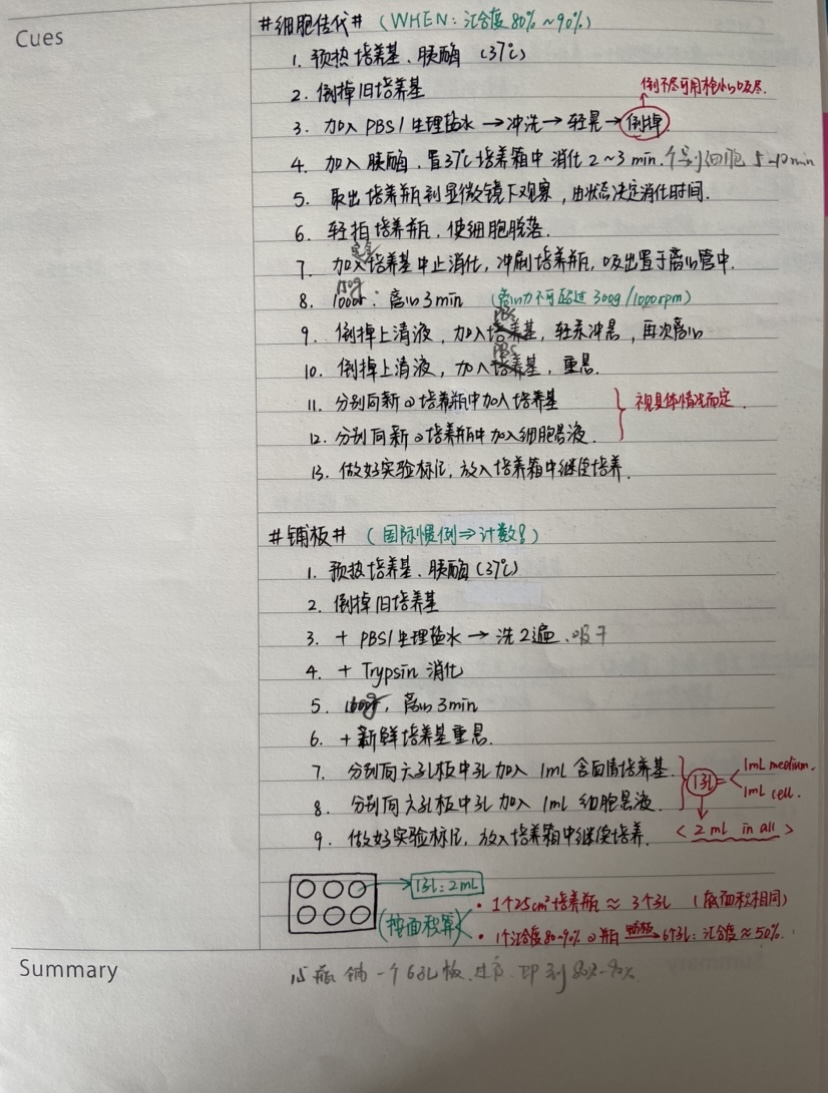 Cues
#细胞传代# (WHEN: 汇合度 80% ~ 90%)
1. 预热培养基、胰酶 (37℃)
2. 倒掉旧培养基
倒不尽可用枪小心吸尽.
3. 加入 PBS / 生理盐水 → 冲洗 → 轻晃 → 倒掉
4. 加入胰酶, 置37℃培养箱中 消化 2~3 min. 个别细胞 5-10min
5. 取出培养瓶到显微镜下观察, 由状态决定消化时间.
6. 轻拍培养瓶, 使细胞脱落.
完全
7. 加入培养基中止消化, 冲刷培养瓶, 吸出置于离心管中.
150g
8. 离心3min (离心力不可超过 300g/1000rpm)
PBS
9. 倒掉上清液, 加入培养基, 轻柔冲悬, 再次离心
PBS
10. 倒掉上清液, 加入培养基, 重悬.
11. 分别向新的培养瓶中加入培养基
视具体情况而定.
12. 分别向新的培养瓶中加入细胞悬液.
13. 做好实验标记, 放入培养箱中继续培养.
#铺板# (国际惯例⇒计数!)
1. 预热培养基、胰酶 (37℃)
2. 倒掉旧培养基
3. + PBS / 生理盐水 → 洗2遍、吸干
4. + Trypsin 消化
5. 离心3min
6. + 新鲜培养基重悬.
7. 分别向六孔板中孔加入 1mL 含血清培养基.
1孔 = < 1mL medium. 1mL cell.
8. 分别向六孔板中孔加入 1mL 细胞悬液.
9. 做好实验标记, 放入培养箱中继续培养.
< 2 mL in all >
1孔: 2mL
(按面积算)
• 1个25cm² 培养瓶 ≈ 3个孔 (底面积相同)
• 1个汇合度80-90%的瓶 铺板→ 6个孔: 汇合度≈50%.
Summary
瓶铺一个6孔板, 即到80%-90%